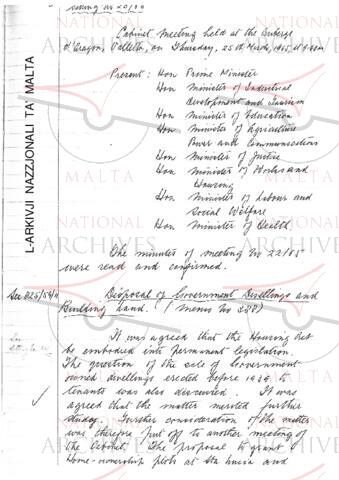 Cabinet Meeting held at the Auberge
d'Aragon, Valletta, on Thursday, 25th March, 1965, at
Present: Hon Prime Minister
Hon Minister of Industrial
Development and Tourism
Hon Minister of Education
Hon Minister of Agriculture
Power and Communications
Hon Minister of Justice
Hon Minister of Works and
Housing
Hon Minister of Labour and
Social Welfare
Hon Minister of Health.
The minutes of meeting No 22/65
were read and confirmed.
See
Disposal of Government Dwellings and
Building Land. (Memo No 338)
It was agreed that the Housing Act
be embodied into permanent legislation.
The question of the sale of Government
owned dwellings erected before 1939 to
tenants was also discussed. It was
agreed that the matter merited further
study. Further consideration of the matter
was therefore put off to another meeting of
the Cabinet. The proposal to grant
Home-ownership plots at Sta Lucia and
L-ARKIVJI NAZZJONALI TA' MALTA
NATIONAL
ARCHIVES
NATIONAL
ARCHIVES
NATIONAL
ARCHIVES
NATIONAL
ARCHIVES